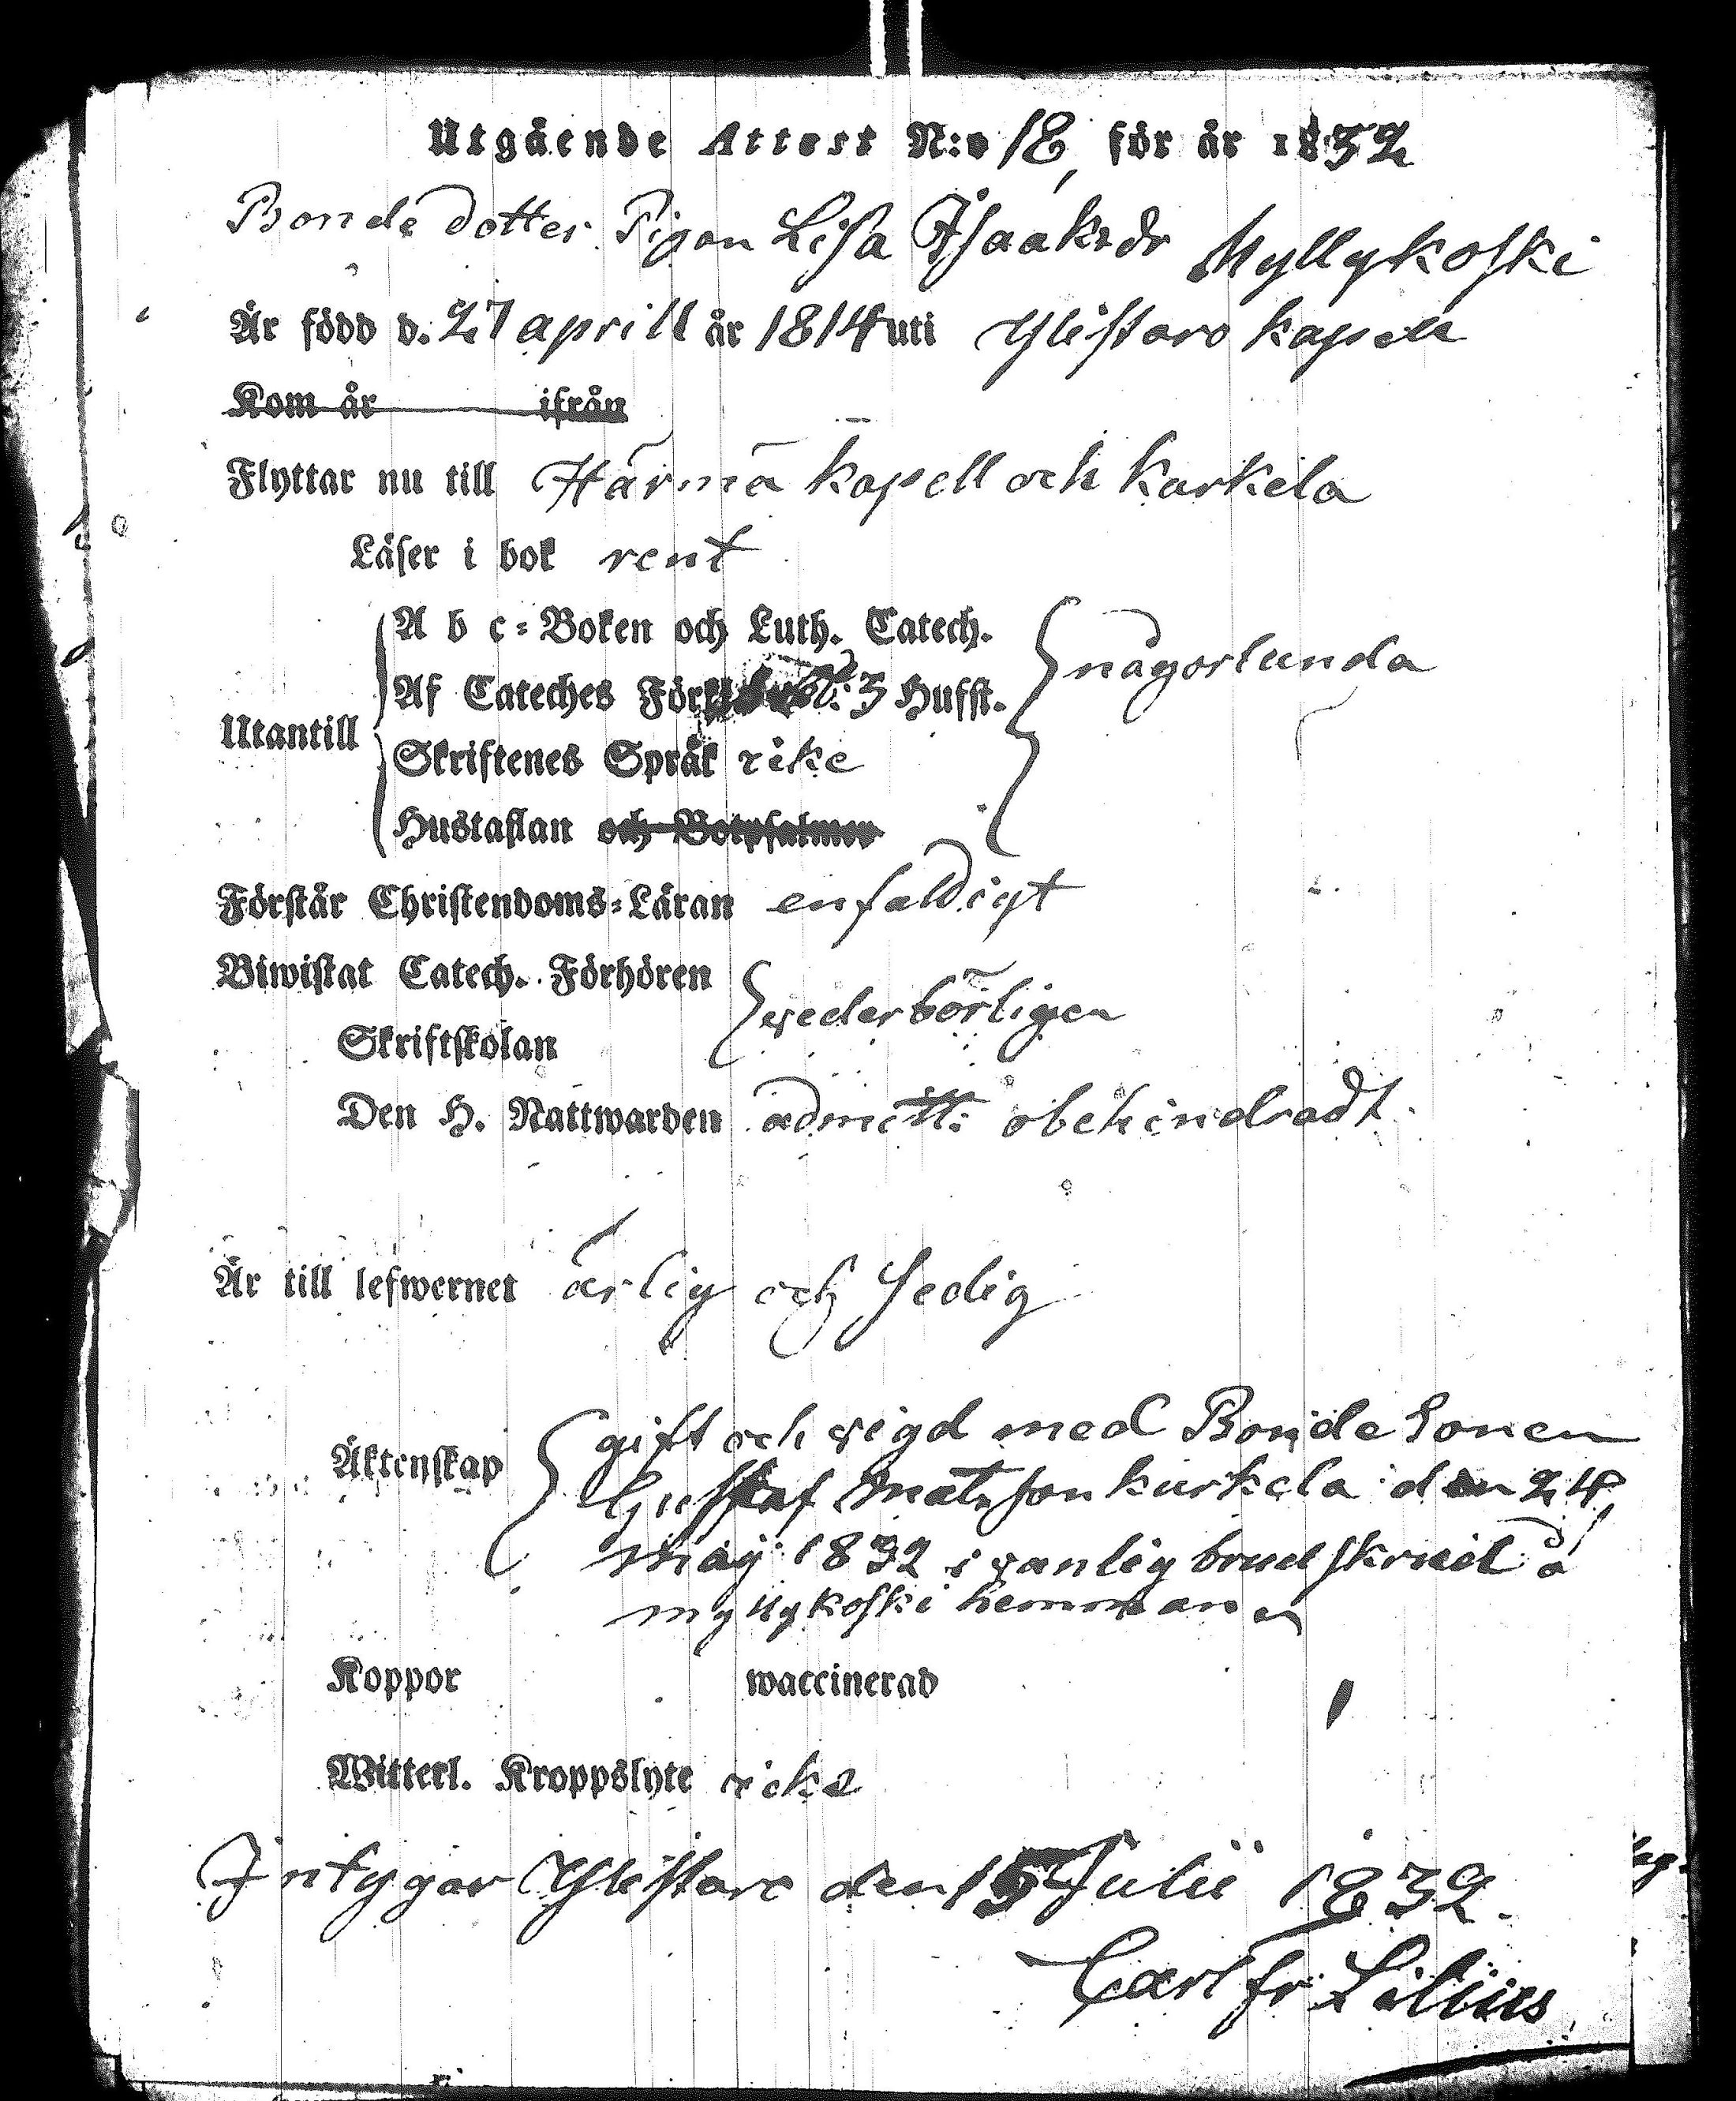 Utgående Attest N:o 18, för år 1832
Bonde dotter Pigan Lisa Isaaksdr Myllykoski
Är född d. 27 aprill år 1814 uti Ylistaro kapell
Kom år ifrån
Flyttar nu till Härmä kapell och Kurkela
Läser i bok rent
A b c-Boken och Luth. Catech.
någorlunda
Af Cateches Förkl. 3 Hufst.
Utantill
Skriftenes Språk icke
Hustaflan och Botpsalmer
Förstår Christendoms-Läran enfaldigt
Biwistat Catech. Förhören
wederbörligen
Skriftskolan
Den H. Nattwarden admitt: obehindradt.
Är till lefwernet ärlig och Sedig
Äktenskap gift och wigd med Bonde Sonen
Gustaf Matsson Kurkela den 24
Maij 1832 i wanlig brudskrud å
myllykoski hemman
Koppor waccinerad
Witterl. Kroppslyte icke
Intygar Ylistaro den 15 Julii 1832.
Carl Fr Lilius